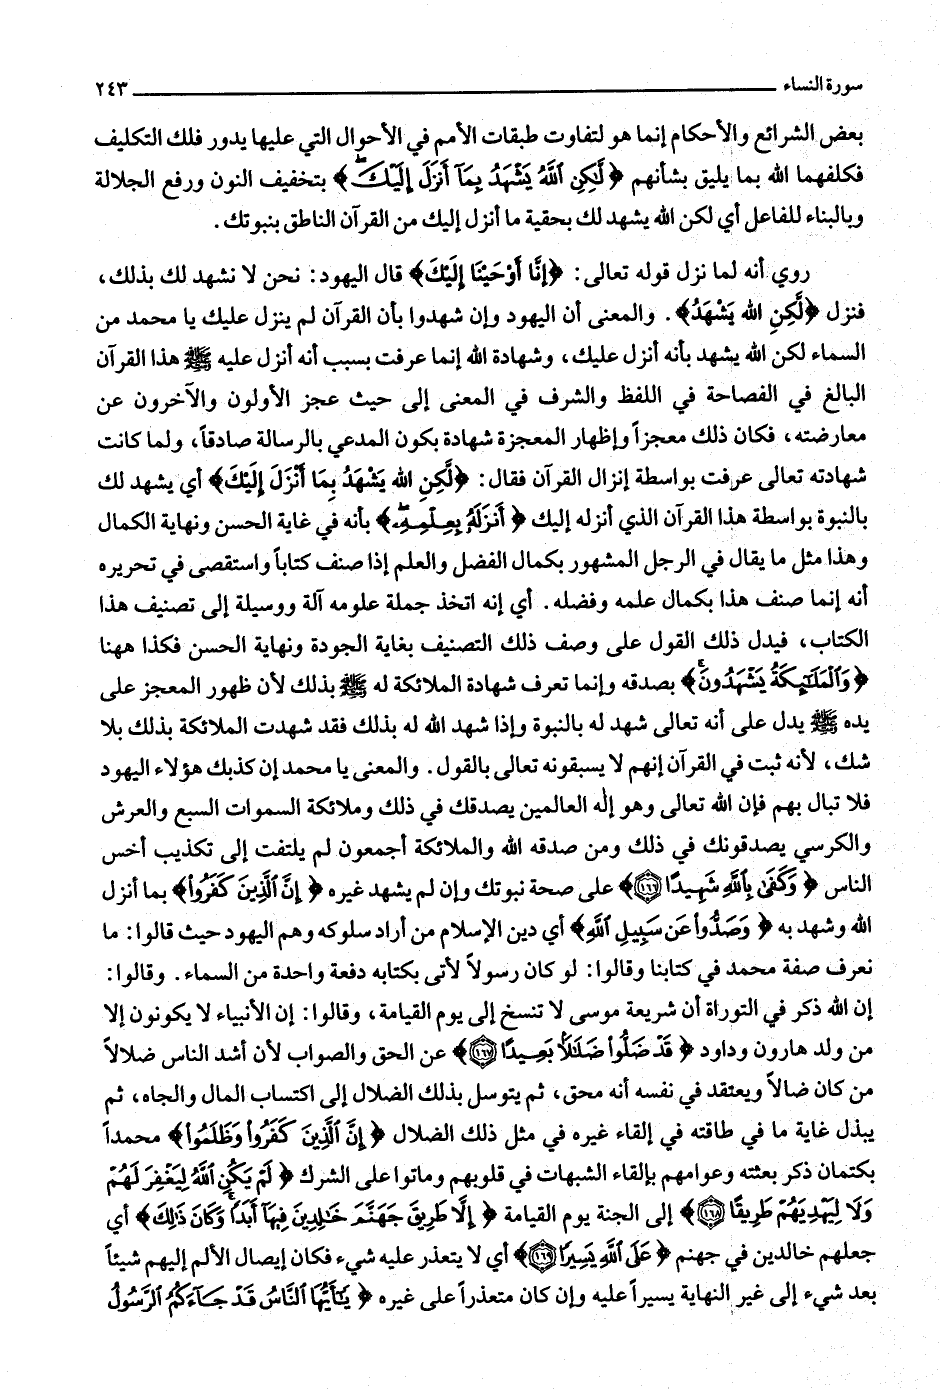 سورة النساء ٢٤٣
بعض الشرائع والأحكام إنما هو لتفاوت طبقات الأمم في الأحوال التي عليها يدور فلك التكليف
فكلفهما الله بما يليق بشأنهم ﴿لَّكِنِ ٱللَّهُ يَشْهَدُ بِمَآ أَنزَلَ إِلَيْكَۖ﴾ بتخفيف النون ورفع الجلالة
وبالبناء للفاعل أي لكن الله يشهد لك بحقية ما أنزل إليك من القرآن الناطق بنبوتك.
روي أنه لما نزل قوله تعالى: ﴿إِنَّا أَوْحَيْنَا إِلَيْكَ﴾ قال اليهود: نحن لا نشهد لك بذلك،
فنزل ﴿لَّكِنِ الله يَشْهَدُ﴾. والمعنى أن اليهود وإن شهدوا بأن القرآن لم ينزل عليك يا محمد من
السماء لكن الله يشهد بأنه أنزل عليك، وشهادة الله إنما عرفت بسبب أنه أنزل عليه ﷺ هذا القرآن
البالغ في الفصاحة في اللفظ والشرف في المعنى إلى حيث عجز الأولون والآخرون عن
معارضته، فكان ذلك معجزاً وإظهار المعجزة شهادة بكون المدعي بالرسالة صادقاً، ولما كانت
شهادته تعالى عرفت بواسطة إنزال القرآن فقال: ﴿لَّكِنِ الله يَشْهَدُ بِمَا أَنْزَلَ إِلَيْكَ﴾ أي يشهد لك
بالنبوة بواسطة هذا القرآن الذي أنزله إليك ﴿أَنزَلَهُۥ بِعِلْمِهِۦۖ﴾ بأنه في غاية الحسن ونهاية الكمال
وهذا مثل ما يقال في الرجل المشهور بكمال الفضل والعلم إذا صنف كتاباً واستقصى في تحريره
أنه إنما صنف هذا بكمال علمه وفضله. أي إنه اتخذ جملة علومه آلة ووسيلة إلى تصنيف هذا
الكتاب، فيدل ذلك القول على وصف ذلك التصنيف بغاية الجودة ونهاية الحسن فكذا ههنا
﴿وَٱلْمَلَٰٓئِكَةُ يَشْهَدُونَۚ﴾ بصدقه وإنما تعرف شهادة الملائكة له ﷺ بذلك لأن ظهور المعجز على
يده ﷺ يدل على أنه تعالى شهد له بالنبوة وإذا شهد الله له بذلك فقد شهدت الملائكة بذلك بلا
شك، لأنه ثبت في القرآن إنهم لا يسبقونه تعالى بالقول. والمعنى يا محمد إن كذبك هؤلاء اليهود
فلا تبال بهم فإن الله تعالى وهو إلٰه العالمين يصدقك في ذلك وملائكة السموات السبع والعرش
والكرسي يصدقونك في ذلك ومن صدقه الله والملائكة أجمعون لم يلتفت إلى تكذيب أخس
الناس ﴿وَكَفَىٰ بِٱللَّهِ شَهِيدًا ١٦٦﴾ على صحة نبوتك وإن لم يشهد غيره ﴿إِنَّ ٱلَّذِينَ كَفَرُوا۟﴾ بما أنزل
الله وشهد به ﴿وَصَدُّوا۟ عَن سَبِيلِ ٱللَّهِ﴾ أي دين الإسلام من أراد سلوكه وهم اليهود حيث قالوا: ما
نعرف صفة محمد في كتابنا وقالوا: لو كان رسولاً لأتى بكتابه دفعة واحدة من السماء. وقالوا:
إن الله ذكر في التوراة أن شريعة موسى لا تنسخ إلى يوم القيامة، وقالوا: إن الأنبياء لا يكونون إلا
من ولد هارون وداود ﴿قَدْ ضَلُّوا۟ ضَلَٰلًۢا بَعِيدًا ١٦٧﴾ عن الحق والصواب لأن أشد الناس ضلالاً
من كان ضالاً ويعتقد في نفسه أنه محق، ثم يتوسل بذلك الضلال إلى اكتساب المال والجاه، ثم
يبذل غاية ما في طاقته في إلقاء غيره في مثل ذلك الضلال ﴿إِنَّ ٱلَّذِينَ كَفَرُوا۟ وَظَلَمُوا۟﴾ محمداً
بكتمان ذكر بعثته وعوامهم بإلقاء الشبهات في قلوبهم وماتوا على الشرك ﴿لَمْ يَكُنِ ٱللَّهُ لِيَغْفِرَ لَهُمْ
وَلَا لِيَهْدِيَهُمْ طَرِيقًا ١٦٨﴾ إلى الجنة يوم القيامة ﴿إِلَّا طَرِيقَ جَهَنَّمَ خَٰلِدِينَ فِيهَآ أَبَدًاۚ وَكَانَ ذَٰلِكَ﴾ أي
جعلهم خالدين في جهنم ﴿عَلَى ٱللَّهِ يَسِيرًا ١٦٩﴾ أي لا يتعذر عليه شيء فكان إيصال الألم إليهم شيئاً
بعد شيء إلى غير النهاية يسيراً عليه وإن كان متعذراً على غيره ﴿يَٰٓأَيُّهَا ٱلنَّاسُ قَدْ جَآءَكُمُ ٱلرَّسُولُ